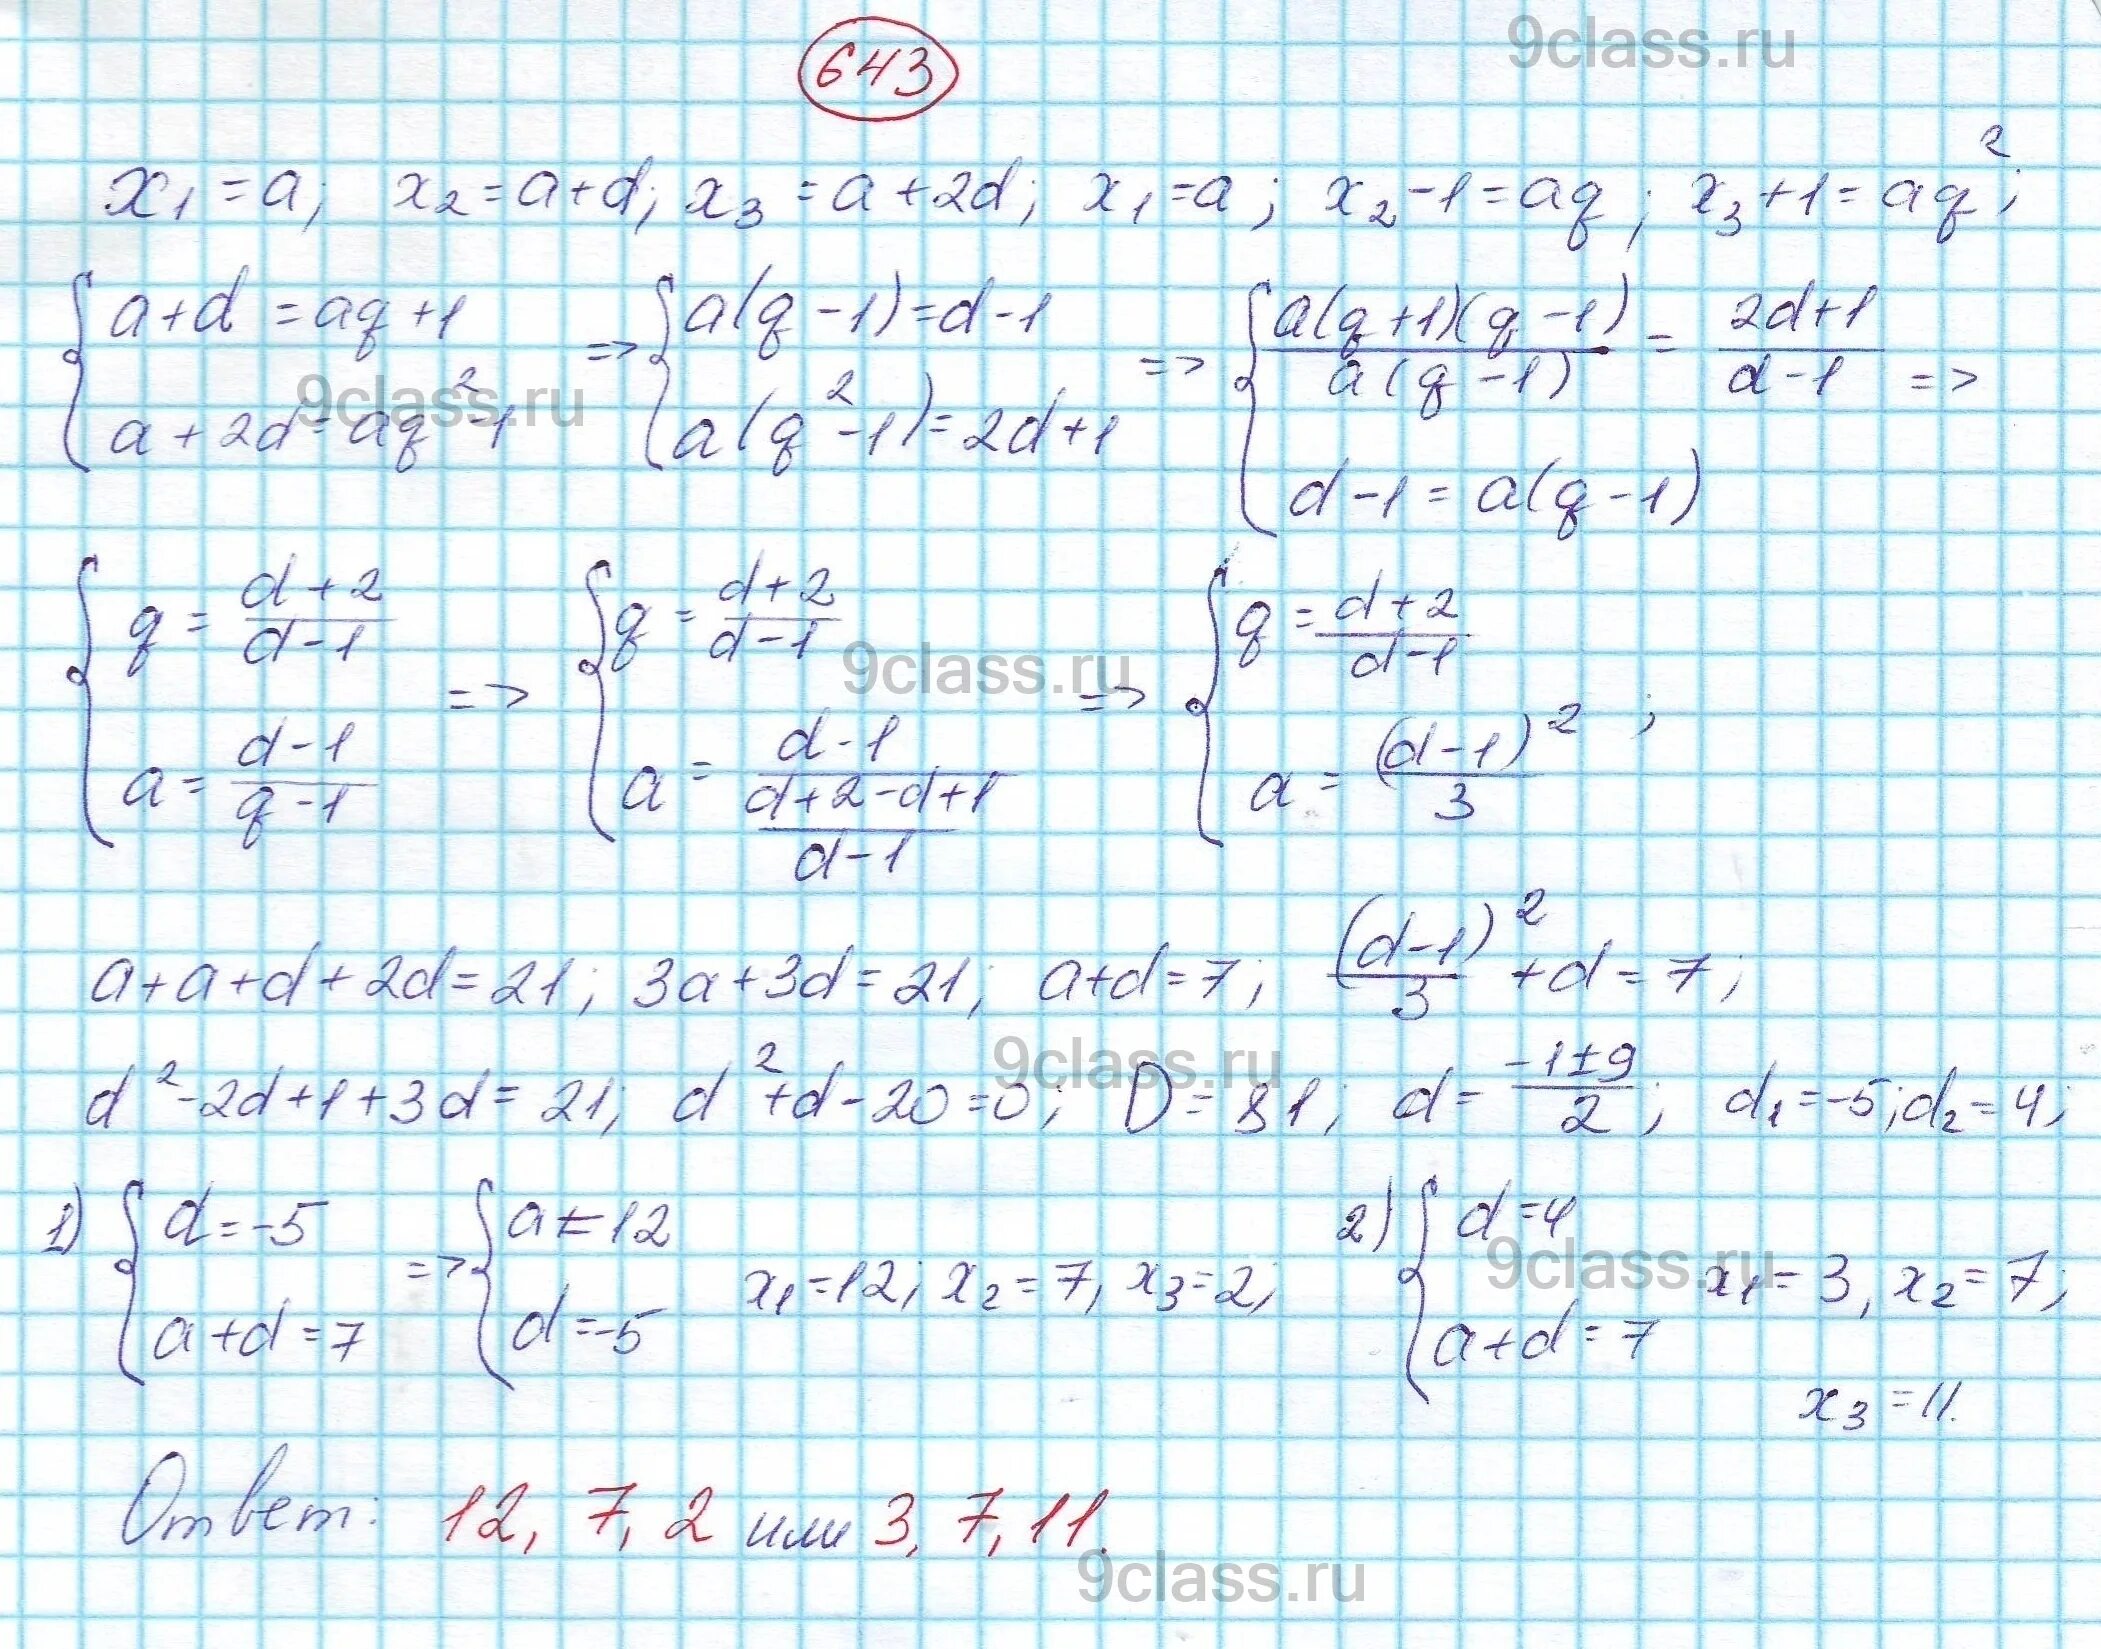 643
9class.ru
x₁ = a; x₂ = a+d; x₃ = a+2d; x₁ = a; x₂ - 1 = aq; x₃ + 1 = aq²;
{ a+d = aq+1 ; a+2d = aq²-1 => { a(q-1) = d-1 ; a(q²-1) = 2d+1 => { a(q+1)(q-1)/a(q-1) = (2d+1)/(d-1) ; d-1 = a(q-1) =>
9class.ru
{ q = (d+2)/(d-1) ; a = (d-1)/(q-1) => { q = (d+2)/(d-1) ; a = (d-1)/((d+2-d+1)/(d-1)) => { q = (d+2)/(d-1) ; a = (d-1)²/3 ;
9class.ru
a+a+d+2d = 21; 3a+3d = 21; a+d = 7; (d-1)²/3 + d = 7;
9class.ru
d²-2d+1+3d = 21; d²+d-20 = 0; D = 81; d = (-1±9)/2; d₁ = -5; d₂ = 4;
1) { d = -5 ; a+d = 7 => { a = 12 ; d = -5 x₁ = 12; x₂ = 7, x₃ = 2; 2) { d = 4 ; a+d = 7 x₁ = 3, x₂ = 7;
9class.ru
x₃ = 11.
Ответ: 12, 7, 2 или 3, 7, 11.
9class.ru